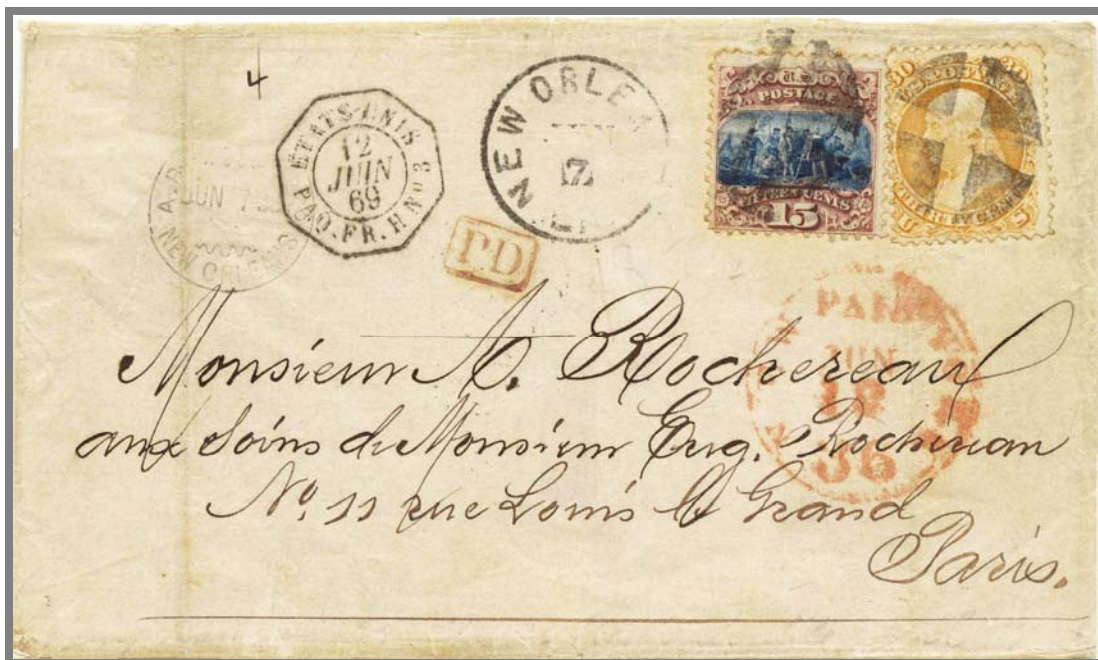 4
ETATS-UNIS
12
JUIN
69
PAQ. FR. H No 3
NEW ORLE
17
A.
JUN 7
NEW ORLEANS
P.D
U.S.
POSTAGE
FIFTEEN CENTS
15
30 30
U.S. POSTAGE
U S
PAID
JUN
12
36
Monsieur A. Rochereau
aux soins de Monsieur Eug. Rochereau
No. 11 rue Louis le Grand
Paris.